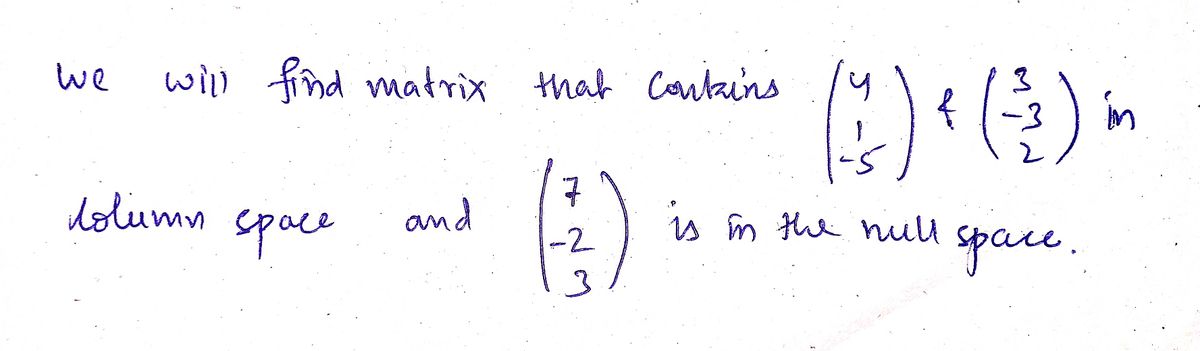 we will find matrix that contains (4 1 -5) & (3 -3 2) in
column space and (7 -2 3) is in the null space.